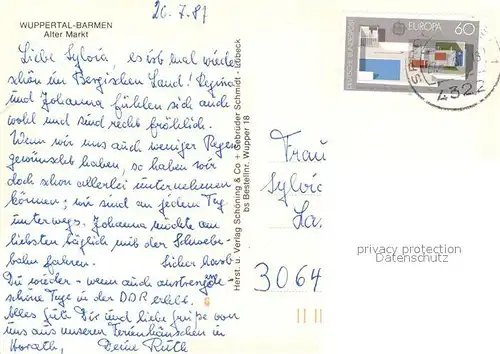 20.7.87
WUPPERTAL-BARMEN
Alter Markt
Liebe Sylvia, es ist mal wieder
schön im Bergischen Land! Regina
und Johanna fühlen sich auch
wohl und sind recht fröhlich.
Wenn wir uns auch weniger Regen
gewünscht haben, so haben wir
doch schon allerlei unternehmen
können; wir sind an jedem Tag
unterwegs. Johanna möchte am
liebsten täglich mit der Schwebe-
bahn fahren. Sicher hast
Du wieder - wenn auch anstrengende -
schöne Tage in der DDR erlebt.
Alles Gute Dir und liebe Grüße von
uns aus unseren Ferienhäuschen in
Horath, Deine Ruth
Herst. u. Verlag Schöning & Co + Gebrüder Schmidt · Lübeck
bs Bestellnr. Wupper 18
DEUTSCHE BUNDESPOST
EUROPA 60
4322
Frau
Sylvia
La
3064
privacy protection
Datenschutz